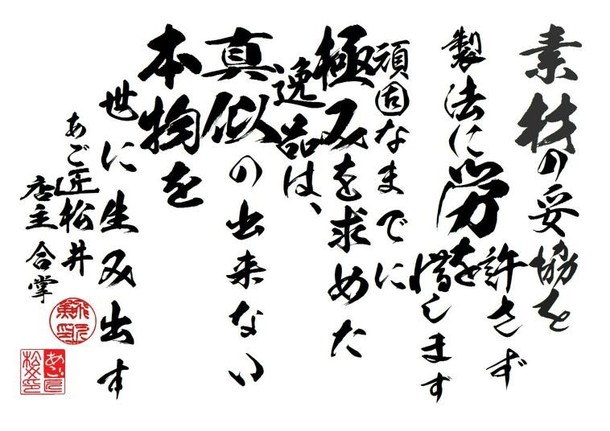 素材の妥協を
許さず
製法に労を
惜します
頑固なまでに
極みを求めた
逸品は、
真似の出来ない
本物を
世に生み出す
あご匠松井
店主 合掌